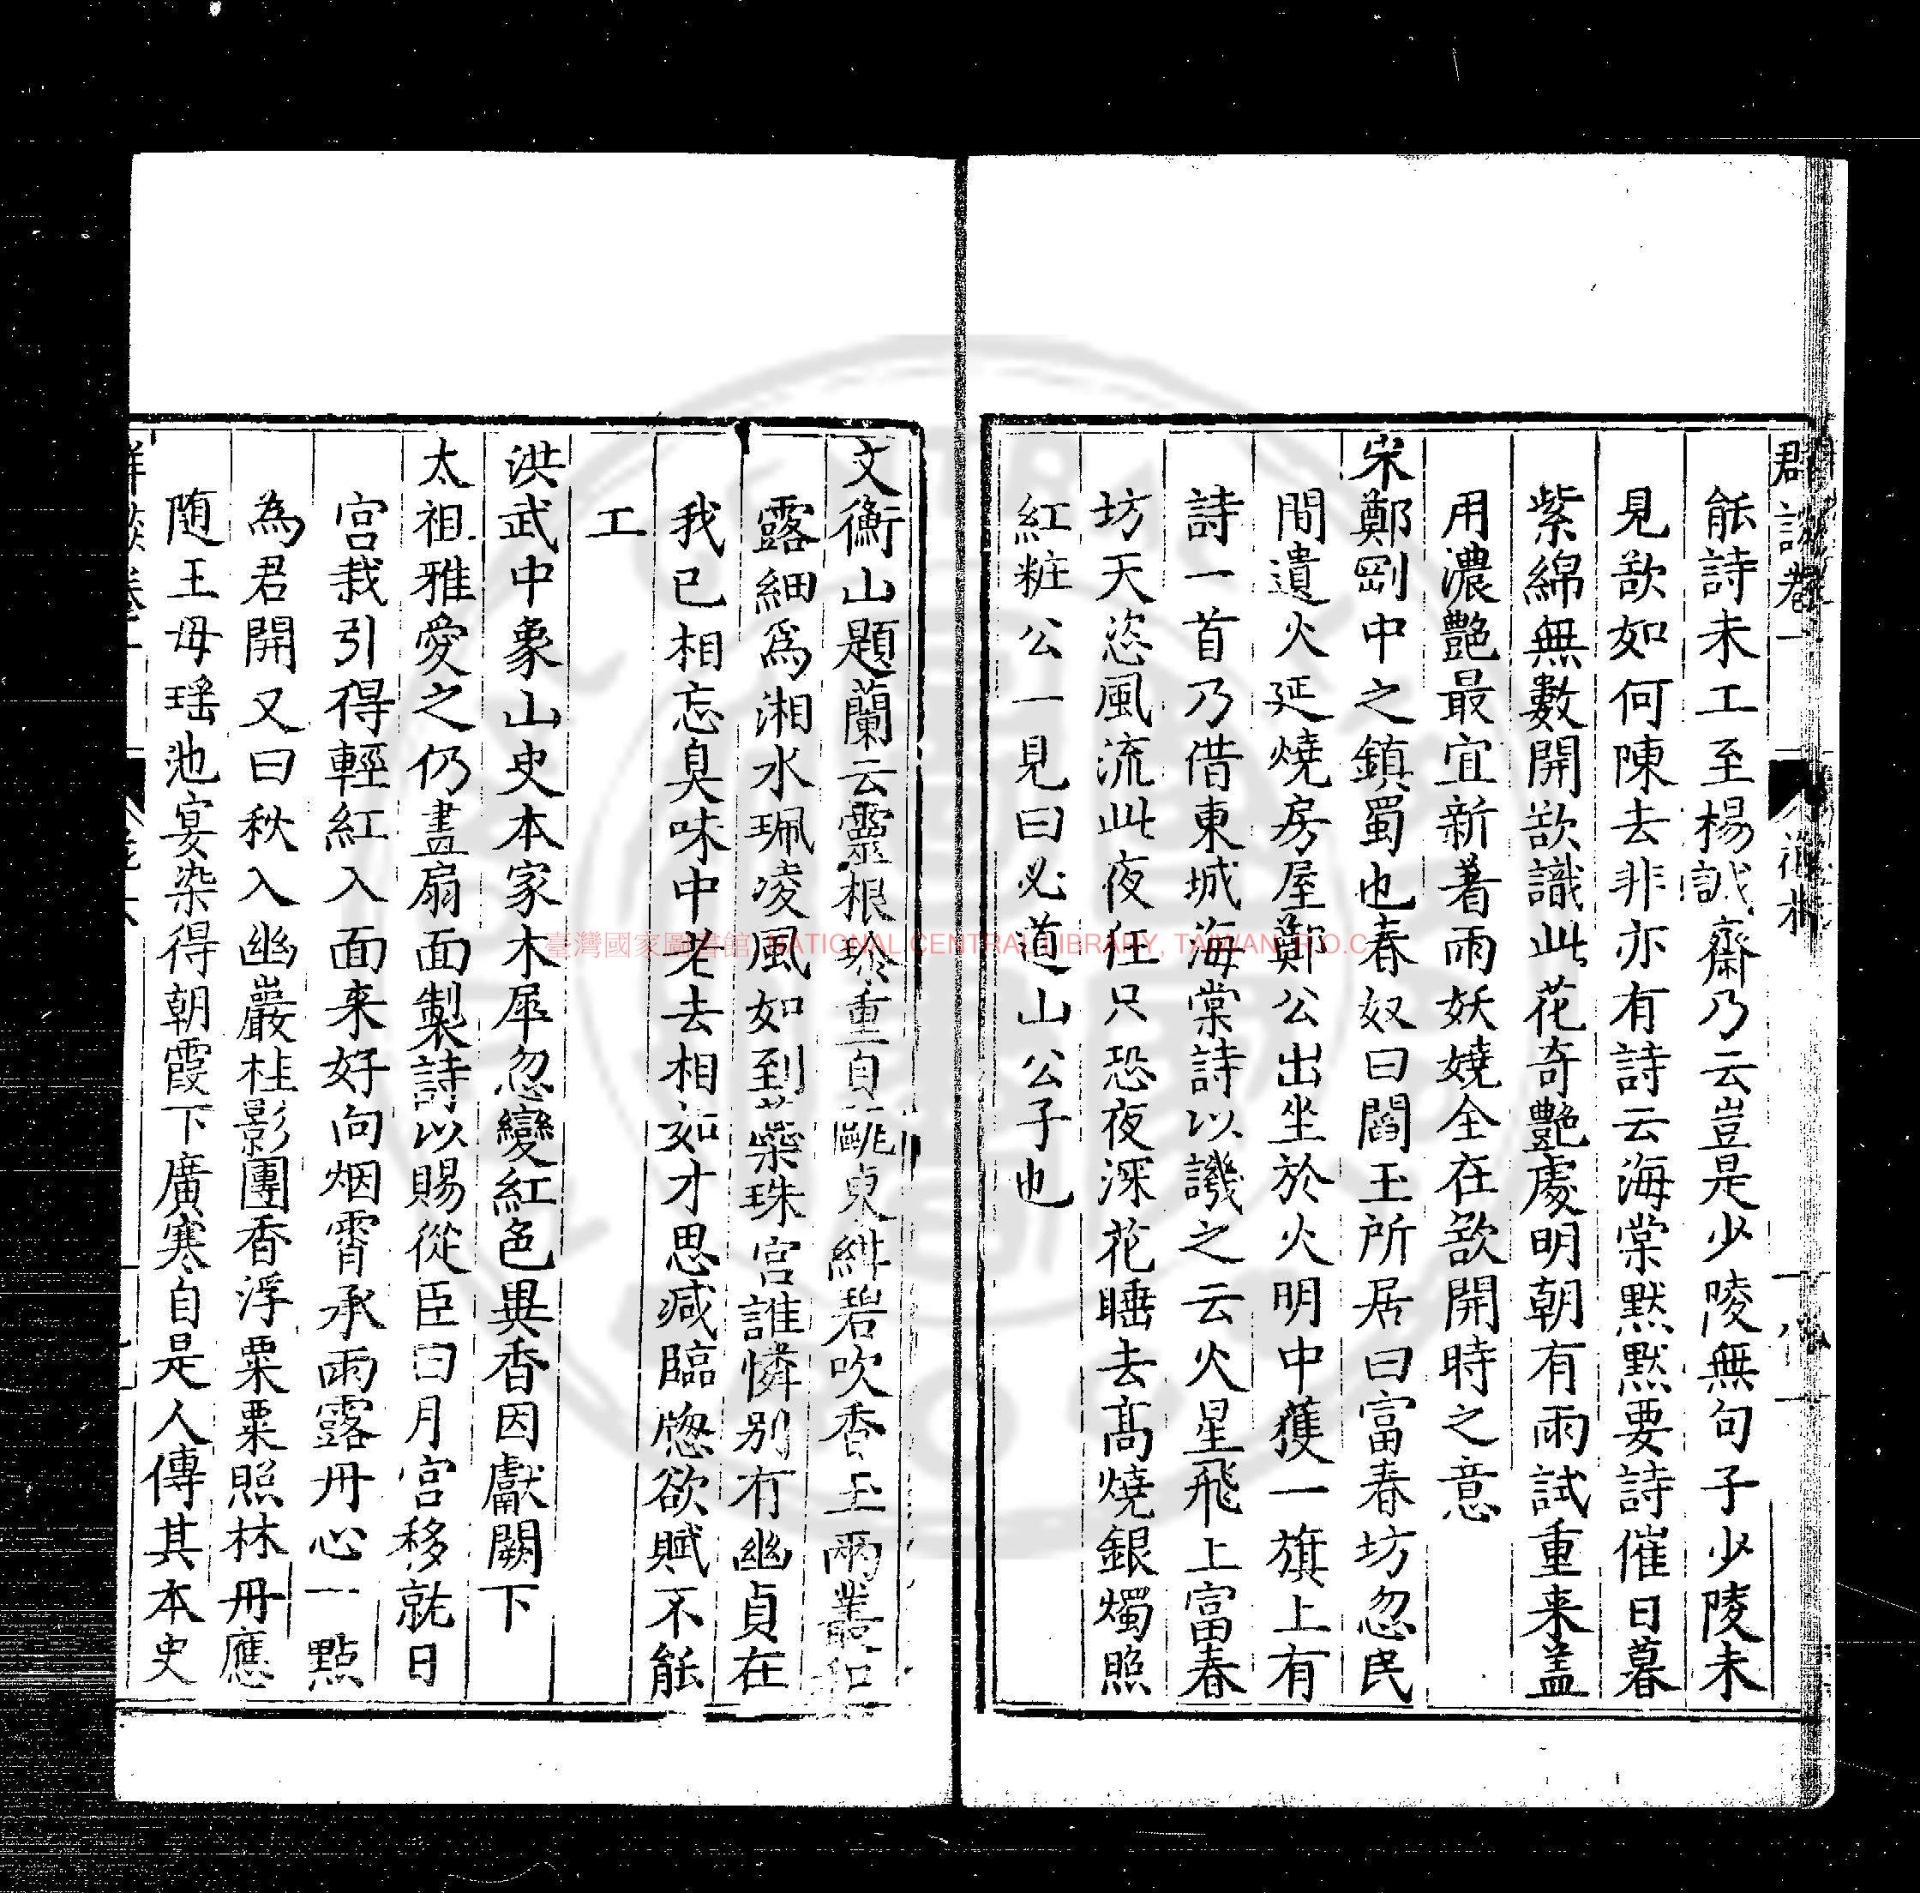 群談卷一
能詩未工至楊誠齋乃云豈是少陵無句子少陵未
見欲如何陳去非亦有詩云海棠默默要詩催日暮
紫綿無數開欲識此花奇艷處明朝有雨試重来盖
用濃艷最宜新着雨妖嬈全在欲開時之意
宋鄭剛中之鎮蜀也春奴曰閻王所居曰富春坊忽民
間遺火延燒房屋鄭公出坐於火明中獲一旗上有
詩一首乃借東城海棠詩以譏之云火星飛上富春
坊天恣風流此夜任只恐夜深花睡去高燒銀燭照
紅粧公一見曰必道山公子也
文衡山題蘭云靈根珍重自甌東紺碧吹香玉兩叢和
露細爲湘水珮凌風如到蘂珠宮誰憐别有幽貞在
我已相忘臭味中老去相如才思减臨牕欲賦不能
工
洪武中象山史本家木犀忽變紅色異香因獻闕下
太祖雅愛之仍畫扇面製詩以賜從臣曰月宮移就日
宮栽引得輕紅入面来好向烟霄承雨露丹心一點
為君開又曰秋入幽巖桂影團香浮粟粟照林丹應
随王母瑶池宴染得朝霞下廣寒自是人傳其本史
臺灣國家圖書館, NATIONAL CENTRAL LIBRARY, TAIWAN, R.O.C